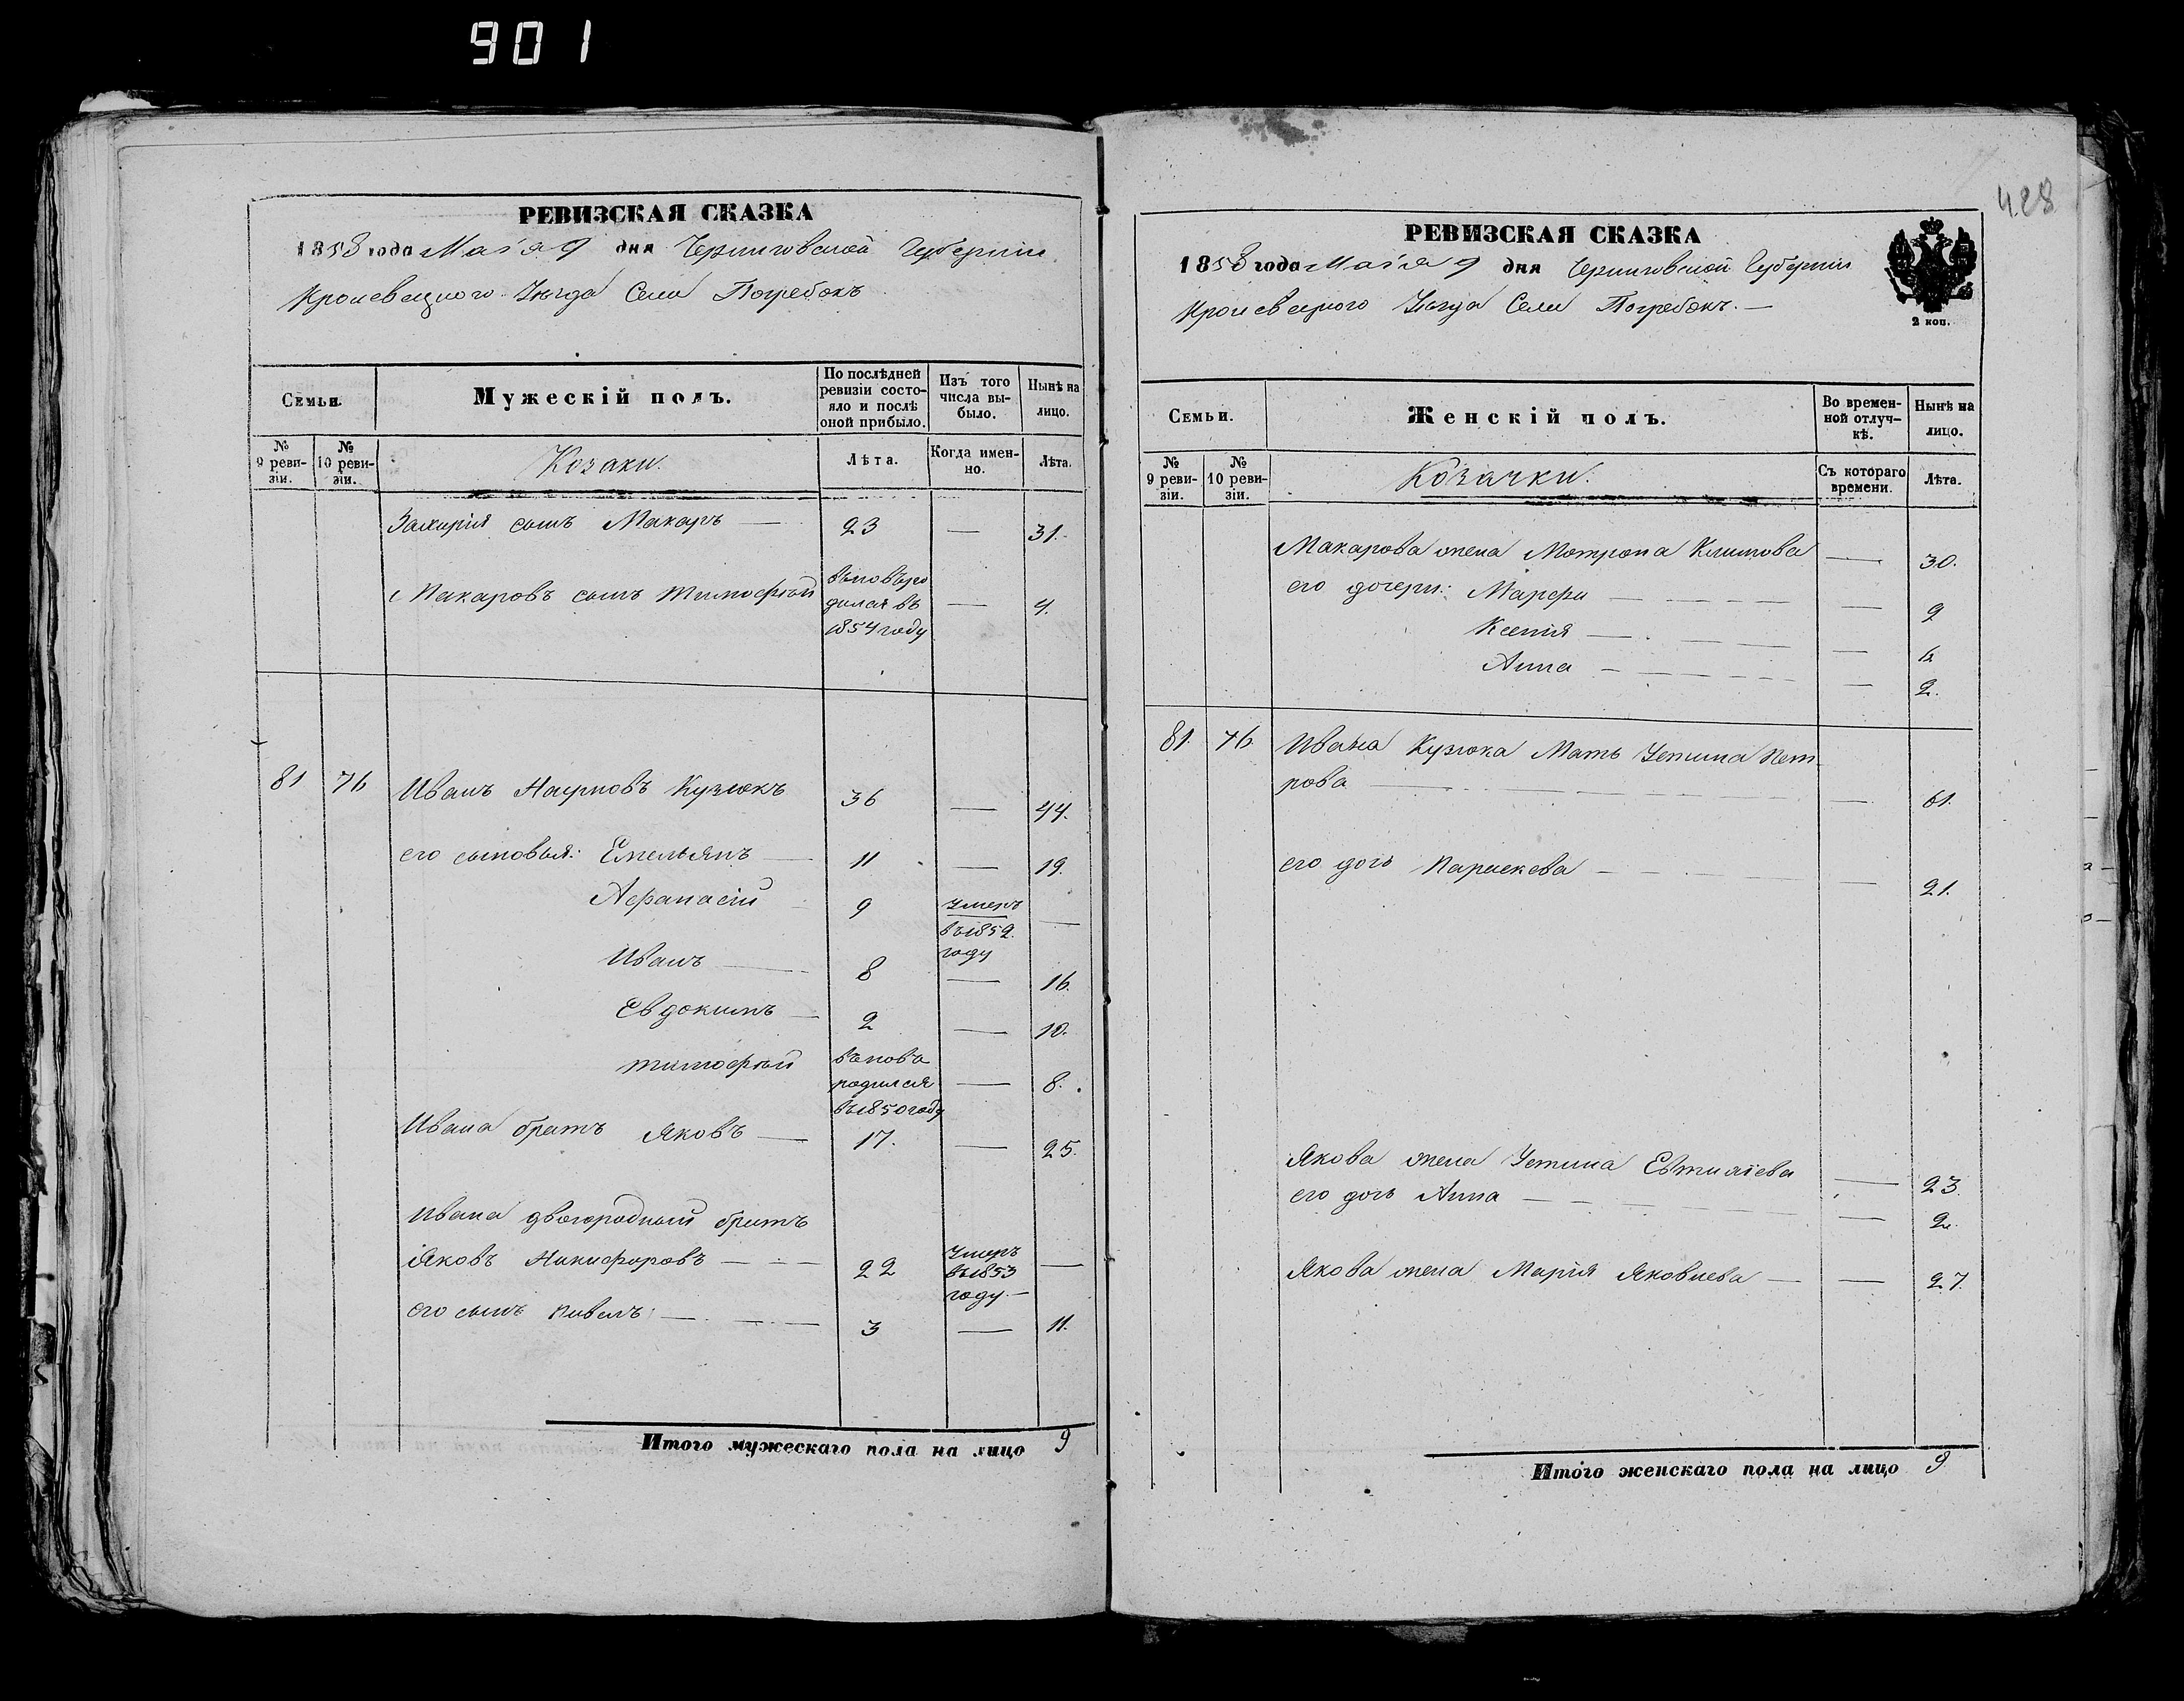 901
428
РЕВИЗСКАЯ СКАЗКА
1858 года Маія 9 дня Черниговской Губерніи
Кролевецкого Уѣзда Села Погребокъ
Семьи.
Мужескій полъ.
По послѣдней ревизіи состояло и послѣ оной прибыло.
Изъ того числа выбыло.
Нынѣ на лицо.
№ 9 ревизіи.
№ 10 ревизіи.
Козаки.
Лѣта.
Когда именно.
Лѣта.
Захарія сынъ Макаръ — 23 — 31.
Макаровъ сынъ Тимофѣй
родился въ 1854 году — 4.
81 76 Иванъ Наумовъ Кузюкъ 36 — 44.
его сыновья: Емельянъ — 11 — 19.
Афанасій 9 умеръ въ 1852 году —
Иванъ — 8 — 16.
Евдокимъ — 2 — 10.
Тимофѣй вънова родился въ 1850 году — 8.
Ивана братъ Яковъ — 17. — 25.
Ивана двоюродный братъ
Яковъ Никифоровъ — 22 умеръ въ 1853 году —
его сынъ Павелъ — 3 — 11.
Итого мужескаго пола на лицо 9
РЕВИЗСКАЯ СКАЗКА
1858 года Маія 9 дня Черниговской Губерніи
Кролевецкого Уѣзда Села Погребокъ. —
2 коп.
Семьи.
Женскій полъ.
Во временной отлучкѣ.
Нынѣ на лицо.
№ 9 ревизіи.
№ 10 ревизіи.
Козачки.
Съ котораго времени.
Лѣта.
Макарова жена Мотрона Климова — 30.
его дочери: Марфа — — 9
Ксенія — — 6
Анна — — 2.
81. 76. Ивана Кузюка Мать Устина Пет
рова — — 61.
его дочь Параскева — — 21.
Якова жена Устина Евтихіева — 23.
его дочь Анна — — 2.
Якова жена Марія Яковлева — — 27.
Итого женскаго пола на лицо 9